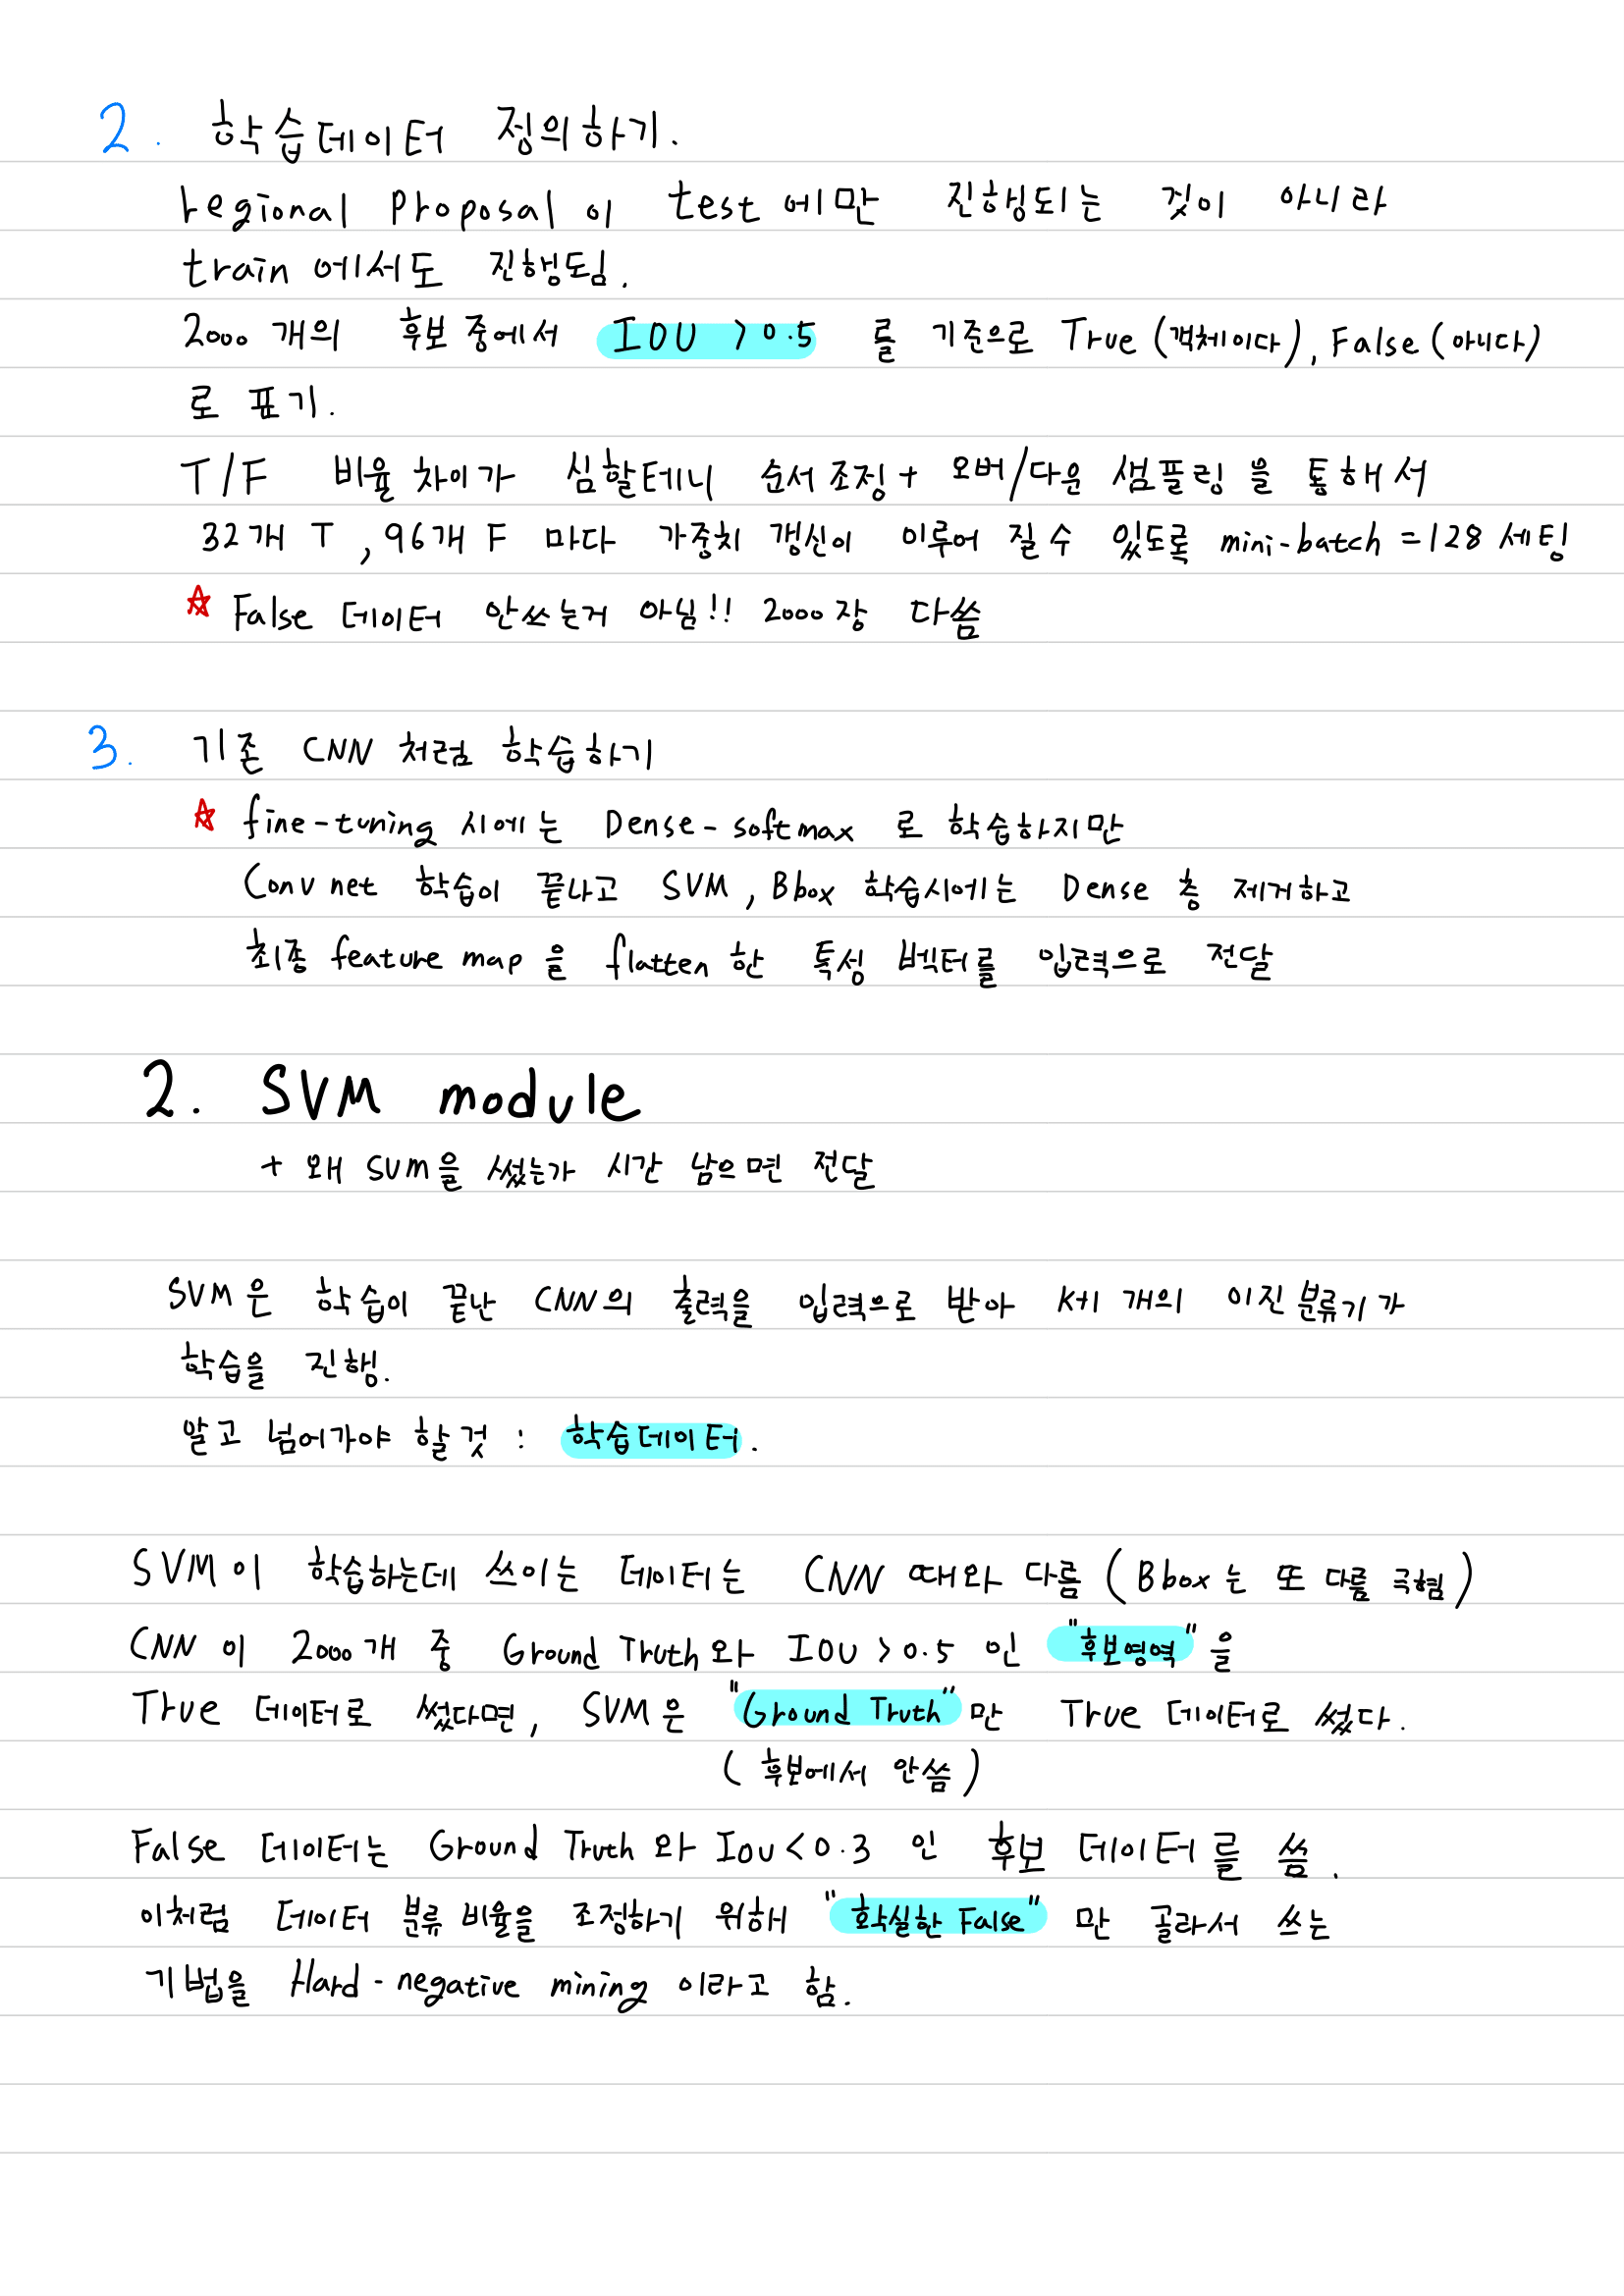 2. 학습데이터 정의하기.
regional proposal이 test에만 진행되는 것이 아니라
train에서도 진행됨.
2000개의 후보 중에서 IOU > 0.5 를 기준으로 True(객체이다), False(아니다)
로 표기.
T/F 비율 차이가 심할테니 순서조정 + 오버/다운 샘플링을 통해서
32개 T, 96개 F 마다 가중치 갱신이 이루어 질 수 있도록 mini-batch = 128 세팅
☆ False 데이터 안쓰는거 아님!! 2000장 다씀
3. 기존 CNN 처럼 학습하기
☆ fine-tuning 시에는 Dense-softmax 로 학습하지만
Conv net 학습이 끝나고 SVM, Bbox 학습시에는 Dense 층 제거하고
최종 feature map을 flatten한 특성 벡터를 입력으로 전달
2. SVM module
+ 왜 SVM을 썼는가 시간 남으면 전달
SVM은 학습이 끝난 CNN의 출력을 입력으로 받아 K+1개의 이진분류기가
학습을 진행.
알고 넘어가야 할것 : 학습데이터.
SVM이 학습하는데 쓰이는 데이터는 CNN 때와 다름 (Bbox는 또 다름 극혐)
CNN이 2000개 중 Ground Truth와 IOU > 0.5 인 "후보영역"을
True 데이터로 썼다면, SVM은 "Ground Truth"만 True 데이터로 썼다.
(후보에서 안씀)
False 데이터는 Ground Truth와 IOU < 0.3 인 후보 데이터를 씀.
이처럼 데이터 분류 비율을 조정하기 위해 "확실한 False" 만 골라서 쓰는
기법을 Hard-negative mining 이라고 함.